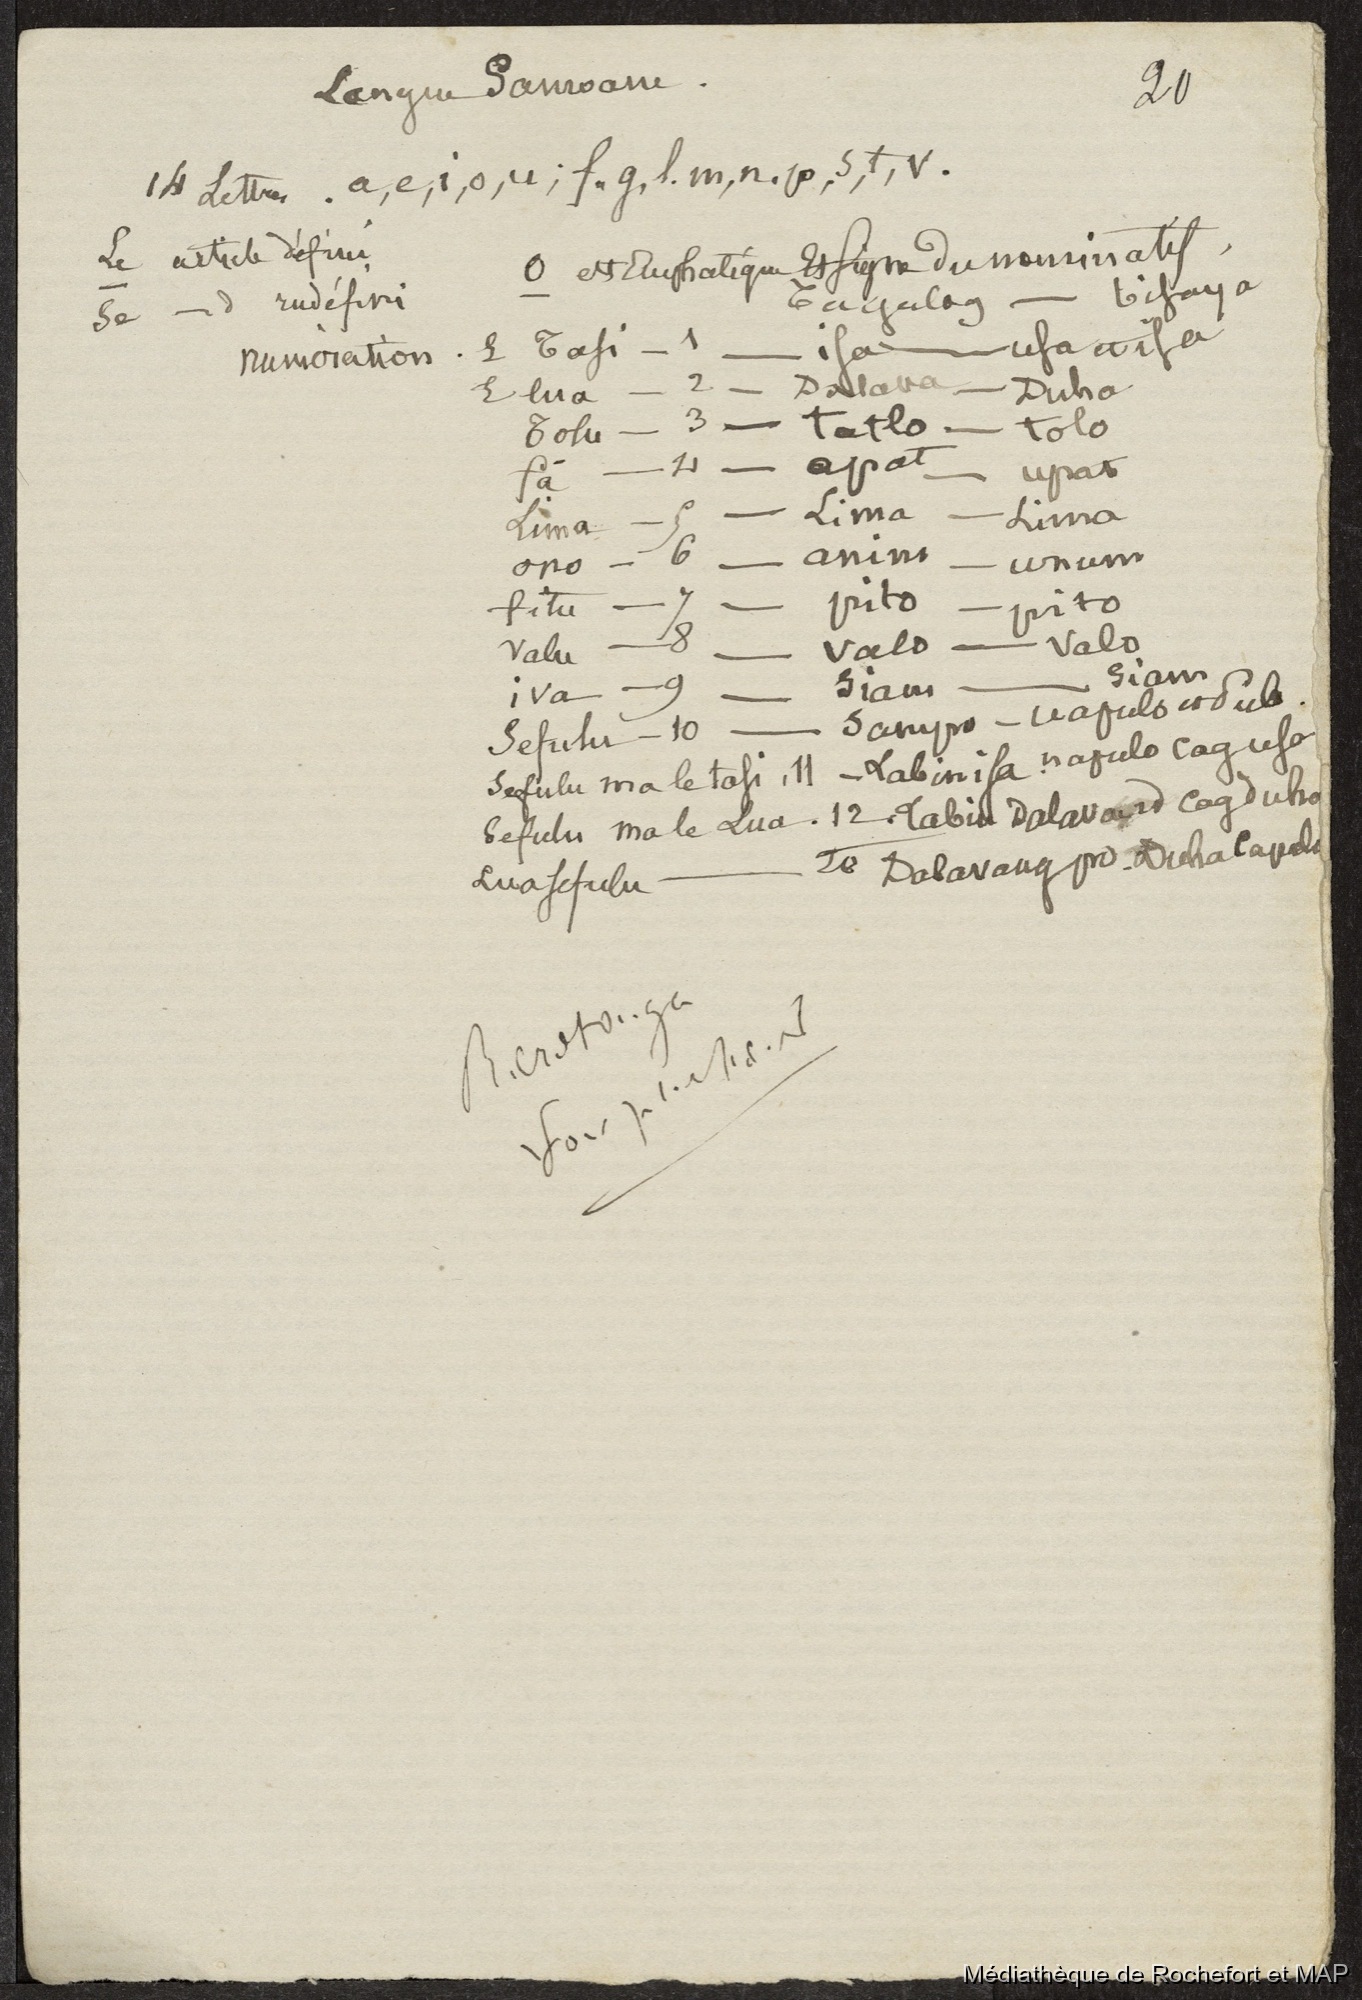 Langue Samoane.
20
14 Lettres. a, e, i, o, u; f. g, l. m, n. p, s, t, v.
Le article défini
O est Emphatique et signe du nominatif,
Se — d indéfini
Tagalog — bisaya
numération. E Tasi — 1 — isa — usa et isa
E lua — 2 — Dalava — Duha
Tolu — 3 — tatlo — tolo
fa — 4 — apat — upat
Lima — 5 — Lima — Lima
ono — 6 — anim — unum
fitu — 7 — pito — pito
valu — 8 — valo — valo
iva — 9 — Siam — Siam
Sefulu — 10 — Sampo — napulo
Sefulu ma le tasi, 11 — Labinisa napulo cag usa
Sefulu ma le Lua. 12. Labin Dalava d cag duha
Luasefulu — 20 Dalavang po. Duha Capulo
Raratonga
Médiathèque de Rochefort et MAP